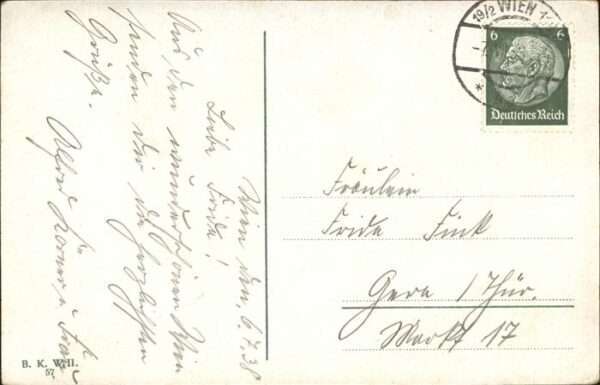 Wien den, 6.7.38
Liebe Frida!
Aus dem wunderschönen Wien
senden wir die herzlichsten
Grüße.
Alfred Körner u. Frau
B. K. W. II.
57
19/2 WIEN
6 6
Deutsches Reich
Fräulein
Frida Fink
Gera / Thür.
Markt 17